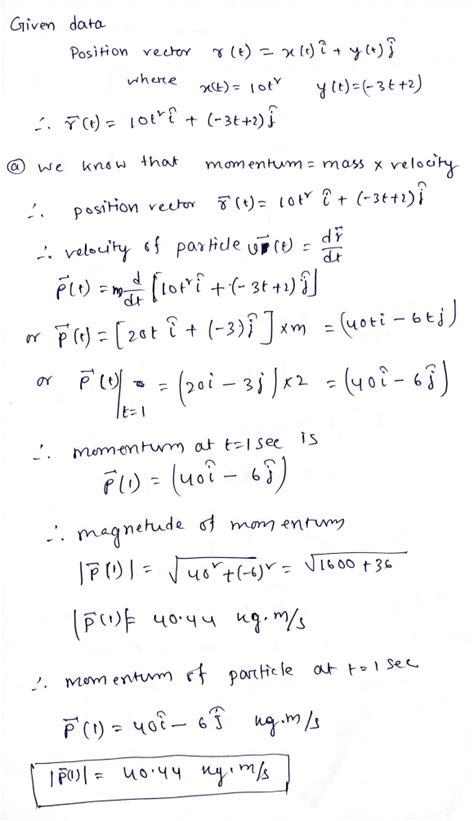 Given data
Position vector r(t) = x(t) î + y(t) ĵ
where x(t) = 10t² y(t) = (-3t+2)
∴ r̄(t) = 10t² î + (-3t+2) ĵ
ⓐ we know that momentum = mass x velocity
∴ position vector r̄(t) = 10t² î + (-3t+2) ĵ
∴ velocity of particle v̄(t) = dr̄/dt
p̄(t) = m d/dt [10t² î + (-3t+2) ĵ]
or p̄(t) = [20t î + (-3) ĵ] x m = (40ti - 6tj)
or p̄(t)|t=1 = (20i - 3j) x 2 = (40î - 6ĵ)
∴ momentum at t=1 sec is
p̄(1) = (40î - 6ĵ)
∴ magnetude of momentum
|p̄(1)| = √40² + (-6)² = √1600 + 36
|p̄(1)| = 40.44 kg.m/s
∴ momentum of particle at t=1 sec
p̄(1) = 40î - 6ĵ kg.m/s
|p̄(1)| = 40.44 kg.m/s